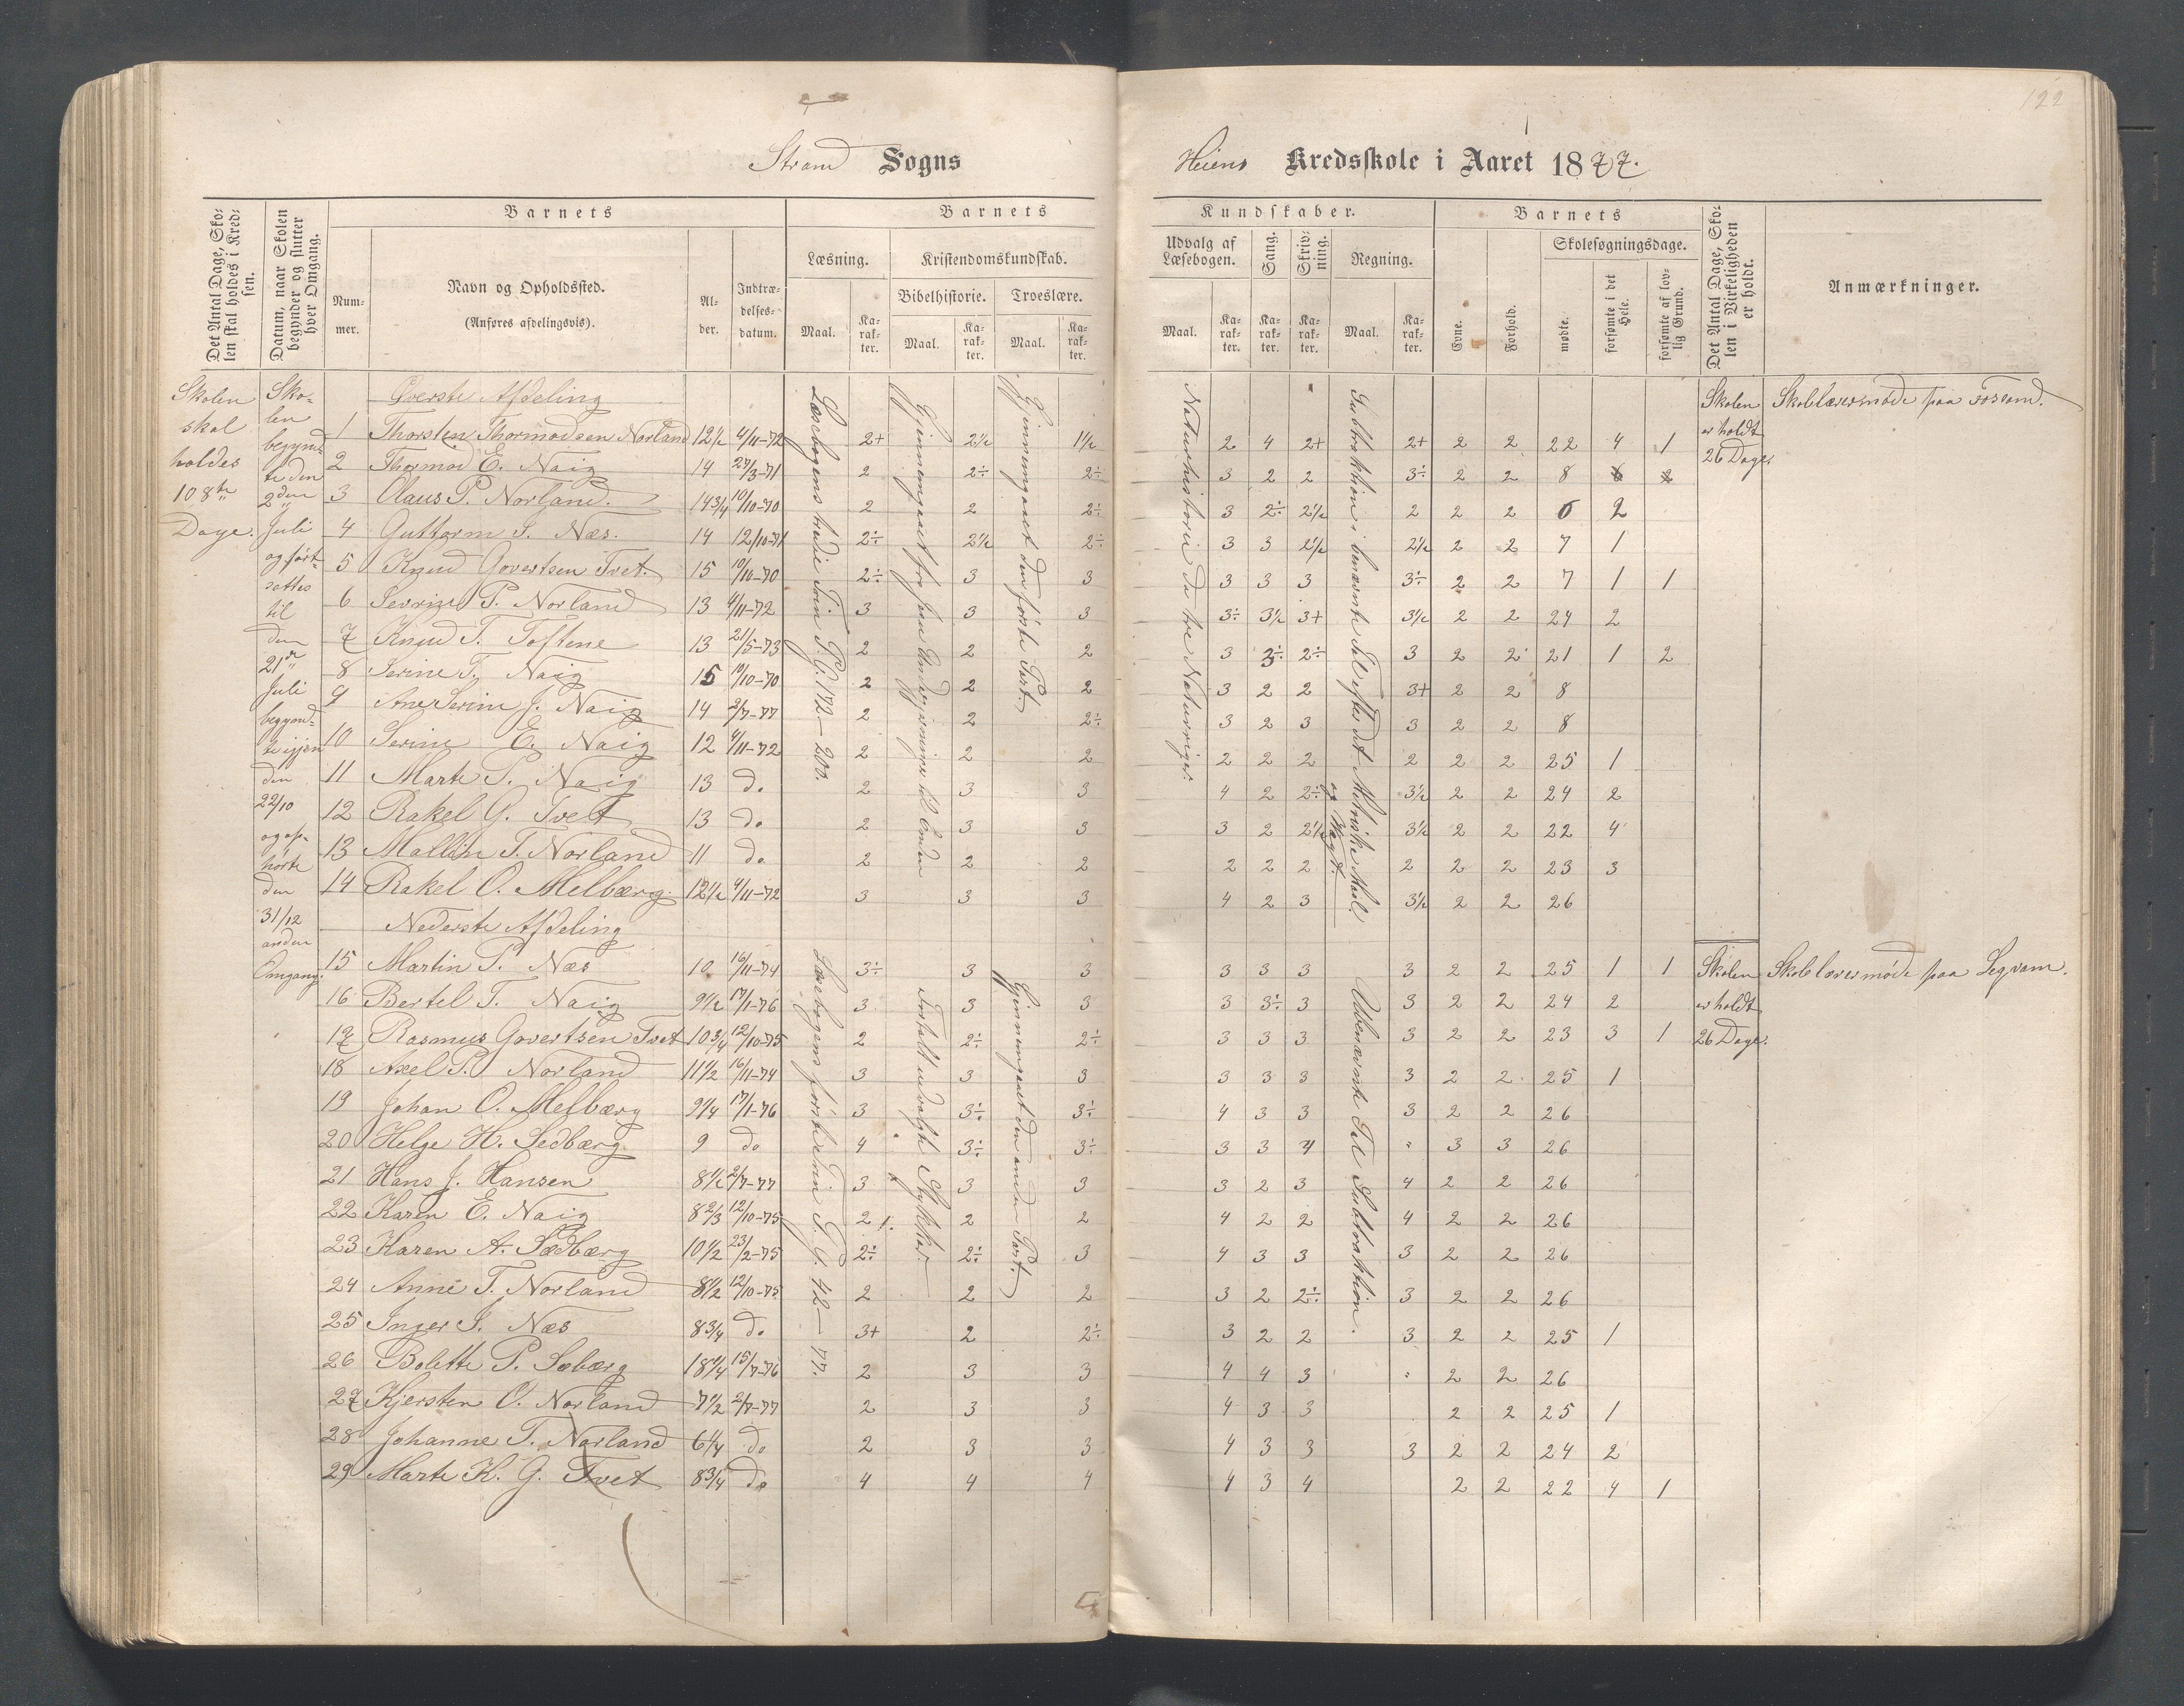 122
Strand Sogns
Heiens Kredsskole i Aaret 1877.
Det Antal Dage, Skolen skal holdes i Kredsen.
Datum, naar Skolen begynder og slutter hver Omgang.
Barnets
Nummer.
Navn og Opholdssted.
(Anføres afdelingsvis).
Alder.
Indtrædelsesdatum.
Barnets
Læsning.
Maal.
Karakter.
Kristendomskundskab.
Bibelhistorie.
Maal.
Karakter.
Troeslære.
Maal.
Karakter.
Kundskaber.
Udvalg af Læsebogen.
Maal.
Karakter.
Sang.
Karakter.
Skrivning.
Karakter.
Regning.
Maal.
Karakter.
Barnets
Evne.
Forhold.
Skolesøgningsdage.
mødte.
forsømte i det Hele.
forsømte af lovlig Grund.
Det Antal Dage, Skolen i Virkeligheden er holdt.
Anmærkninger.
Skolen
skal
holdes
108te
Dage.
Sko-
len
begynd-
te den
2den
Juli
og fort-
sattes
til
den
21de
Juli
begynd-
te igjen
den
22/10
og op-
hørte
den
31/12
anden
Omgang.
Øverste Afdeling
1 Thorsten Thormodsen Norland 12½ 4/11-72 2+ 2½ 1½ 2 4 2+ 2+ 2 2 22 4 1
2 Thormod E. Naig 14 27/3-71 2 2÷ 2÷ 3 2 2 3÷ 2 2 8
3 Olaus P. Norland. 14¾ 10/10-70 2 2 2÷ 3 2÷ 2½ 2 2 2 6 2
4 Guttorm S. Næs. 14 12/10-71 2÷ 2½ 2÷ 3 3 2½ 2½ 2 2 7 1
5 Knud Govertsen Tvet. 15 10/10-70 2÷ 3 3 3 3 3 3÷ 2 2 7 1 1
6 Sevrine P. Norland 13 4/11-72 3 3 3 3÷ 3½ 3+ 3½ 2 2 24 2
7 Knud T. Toftene 13 21/5-73 2 2 2 3 3÷ 2÷ 3 2 2 21 1 2
8 Serine T. Naig 15 10/10-70 2 2 2 3 2 2 3+ 2 2 8
9 Ane Serine J. Naig 14 2/7-77 2 2 2÷ 3 2 3 3 2 2 8
10 Serine E. Naig 12 4/11-72 2 2 2 2 2 2 2 2 2 25 1
11 Marte P. Naig 13 do 2 3 3 4 2 2÷ 3½ 2 2 24 2
12 Rakel G. Tvet 13 do 2 3 3 3 2 2½ 3½ 2 2 22 4
13 Mallin T. Norland 11 do 2 2 2 2 2 2 2 2 2 23 3
14 Rakel O. Melbærg. 12½ 4/11-72 3 3 3 4 2 3 3½ 2 2 26
Læsebogens tredie Trin P.P. 172-200.
Gjennemgaaet fra Jesu Undergjerninger til Enden
Gjennemgaaet den første Part.
Naturhistorie de tre Naturriger.
Subtraktion i benævnte Tal efter det Metriske Maal
og Vægt.
Skolen
er holdt
26 Dage.
Skolelærermøde paa Fossand.
Nederste Afdeling
15 Martin P. Næs 10 16/11-74 3÷ 3 3 3 3 3 3 2 2 25 1 1
16 Bertel T. Naig 9½ 17/1-76 3 3 3 3 3÷ 3 3 2 2 24 2
17 Rasmus Govertsen Tvet 10¾ 12/10-75 2 2÷ 2÷ 3 3 3 3 2 2 23 3 1
18 Axel P. Norland 11½ 16/11-74 3 3 3 3 3 3 3 2 2 25 1
19 Johan O. Melbærg 9¼ 17/1-76 3 3÷ 3÷ 4 3 3 3 2 2 26
20 Helge H. Sedbærg. 9 do 4 3÷ 3÷ 3 3 4 " 3 3 26
21 Hans J. Hansen 8½ 2/7-77 3 3 3 3 2 3 4 2 2 26
22 Karen E. Naig 8⅔ 12/10-75 2 2 2 4 2 2 4 2 2 26
23 Karen A. Sædbærg 10½ 23/2-75 2÷ 2÷ 3 4 3 3 3 2 2 26
24 Anne T. Norland 8½ 12/10-75 2 2 2 3 2 2÷ 3 2 2 26
25 Inger S. Næs 8¾ do 3+ 2 2÷ 3 2 2 3 2 2 25 1
26 Bolette P. Sæbærg 15/7-76 2 3 3 4 4 3 " 2 2 26
27 Kjersten O. Norland 7½ 2/7-77 2 3 3 4 3 3 2 2 25 1
28 Johanne T. Norland 6¼ do 2 3 3 4 3 3 3 2 2 24 2
29 Marte K. G. Tvet 8¾ do 4 4 4 4 3 4 2 2 22 4 1
Læsebogens første Trin P.P. 42-77.
Fortalt udvalgte Stykker.
Gjennemgaaet den anden Part.
Ubenævnte Tal Subtraktion.
Skolen
er holdt
26 Dage.
Skolelærermøde paa